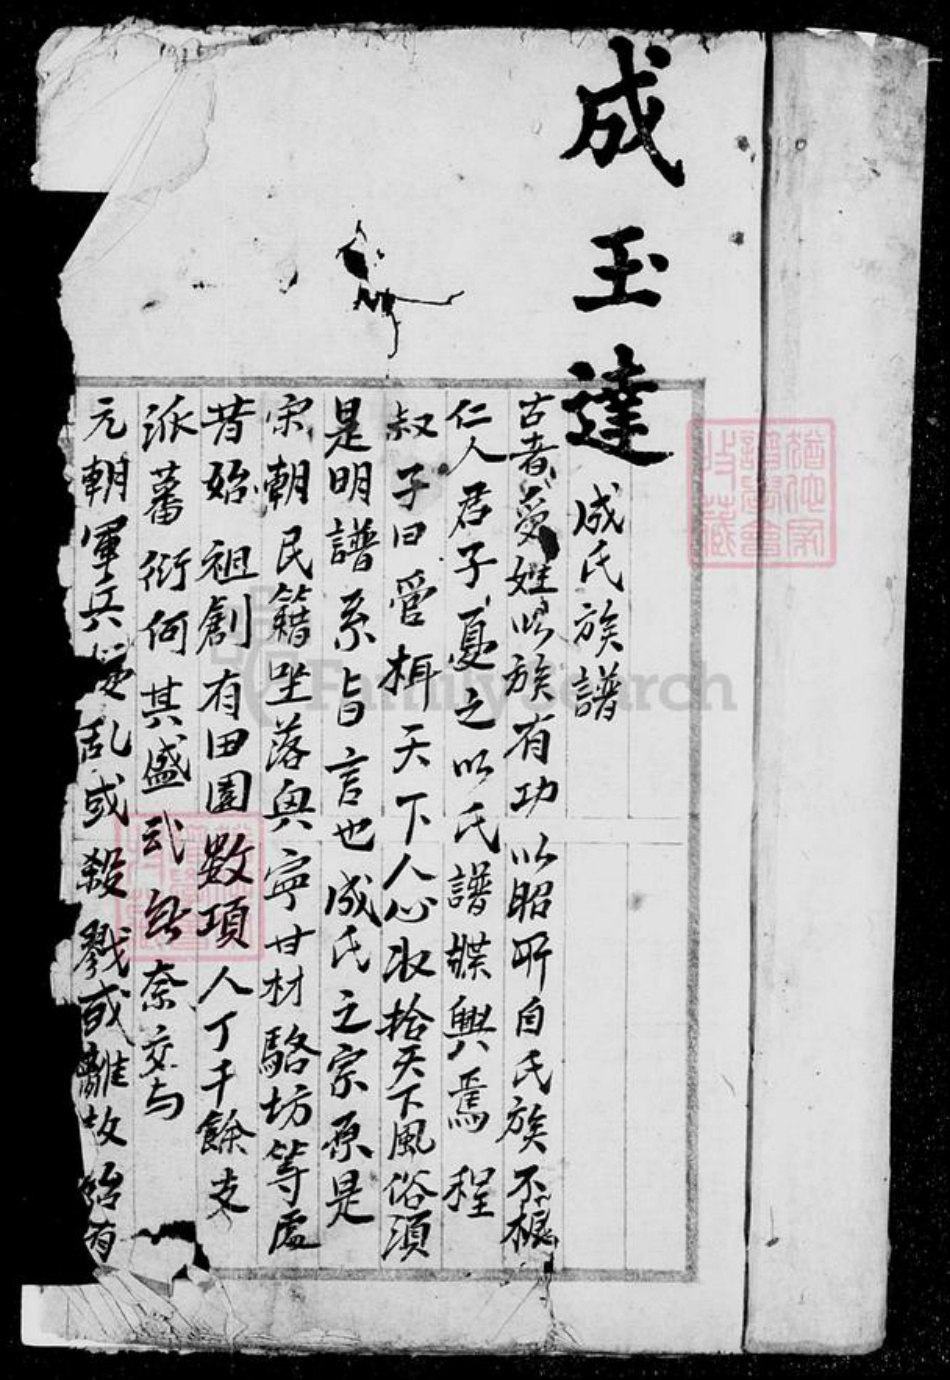 成玉達
成氏族譜
古者愛姓以族有功以昭所自氏族不根
仁人君子憂之以氏譜牒興焉程
叔子曰管梋天下人心收拾天下風俗須
是明譜系旨言也成氏之宗原是
宋朝民籍坐落興寧甘村駱坊等處
昔始祖創有田園數項人丁千餘支
派蕃衍何其盛弍無奈交与
元朝軍兵乱或殺戮或離故始有
FamilySearch